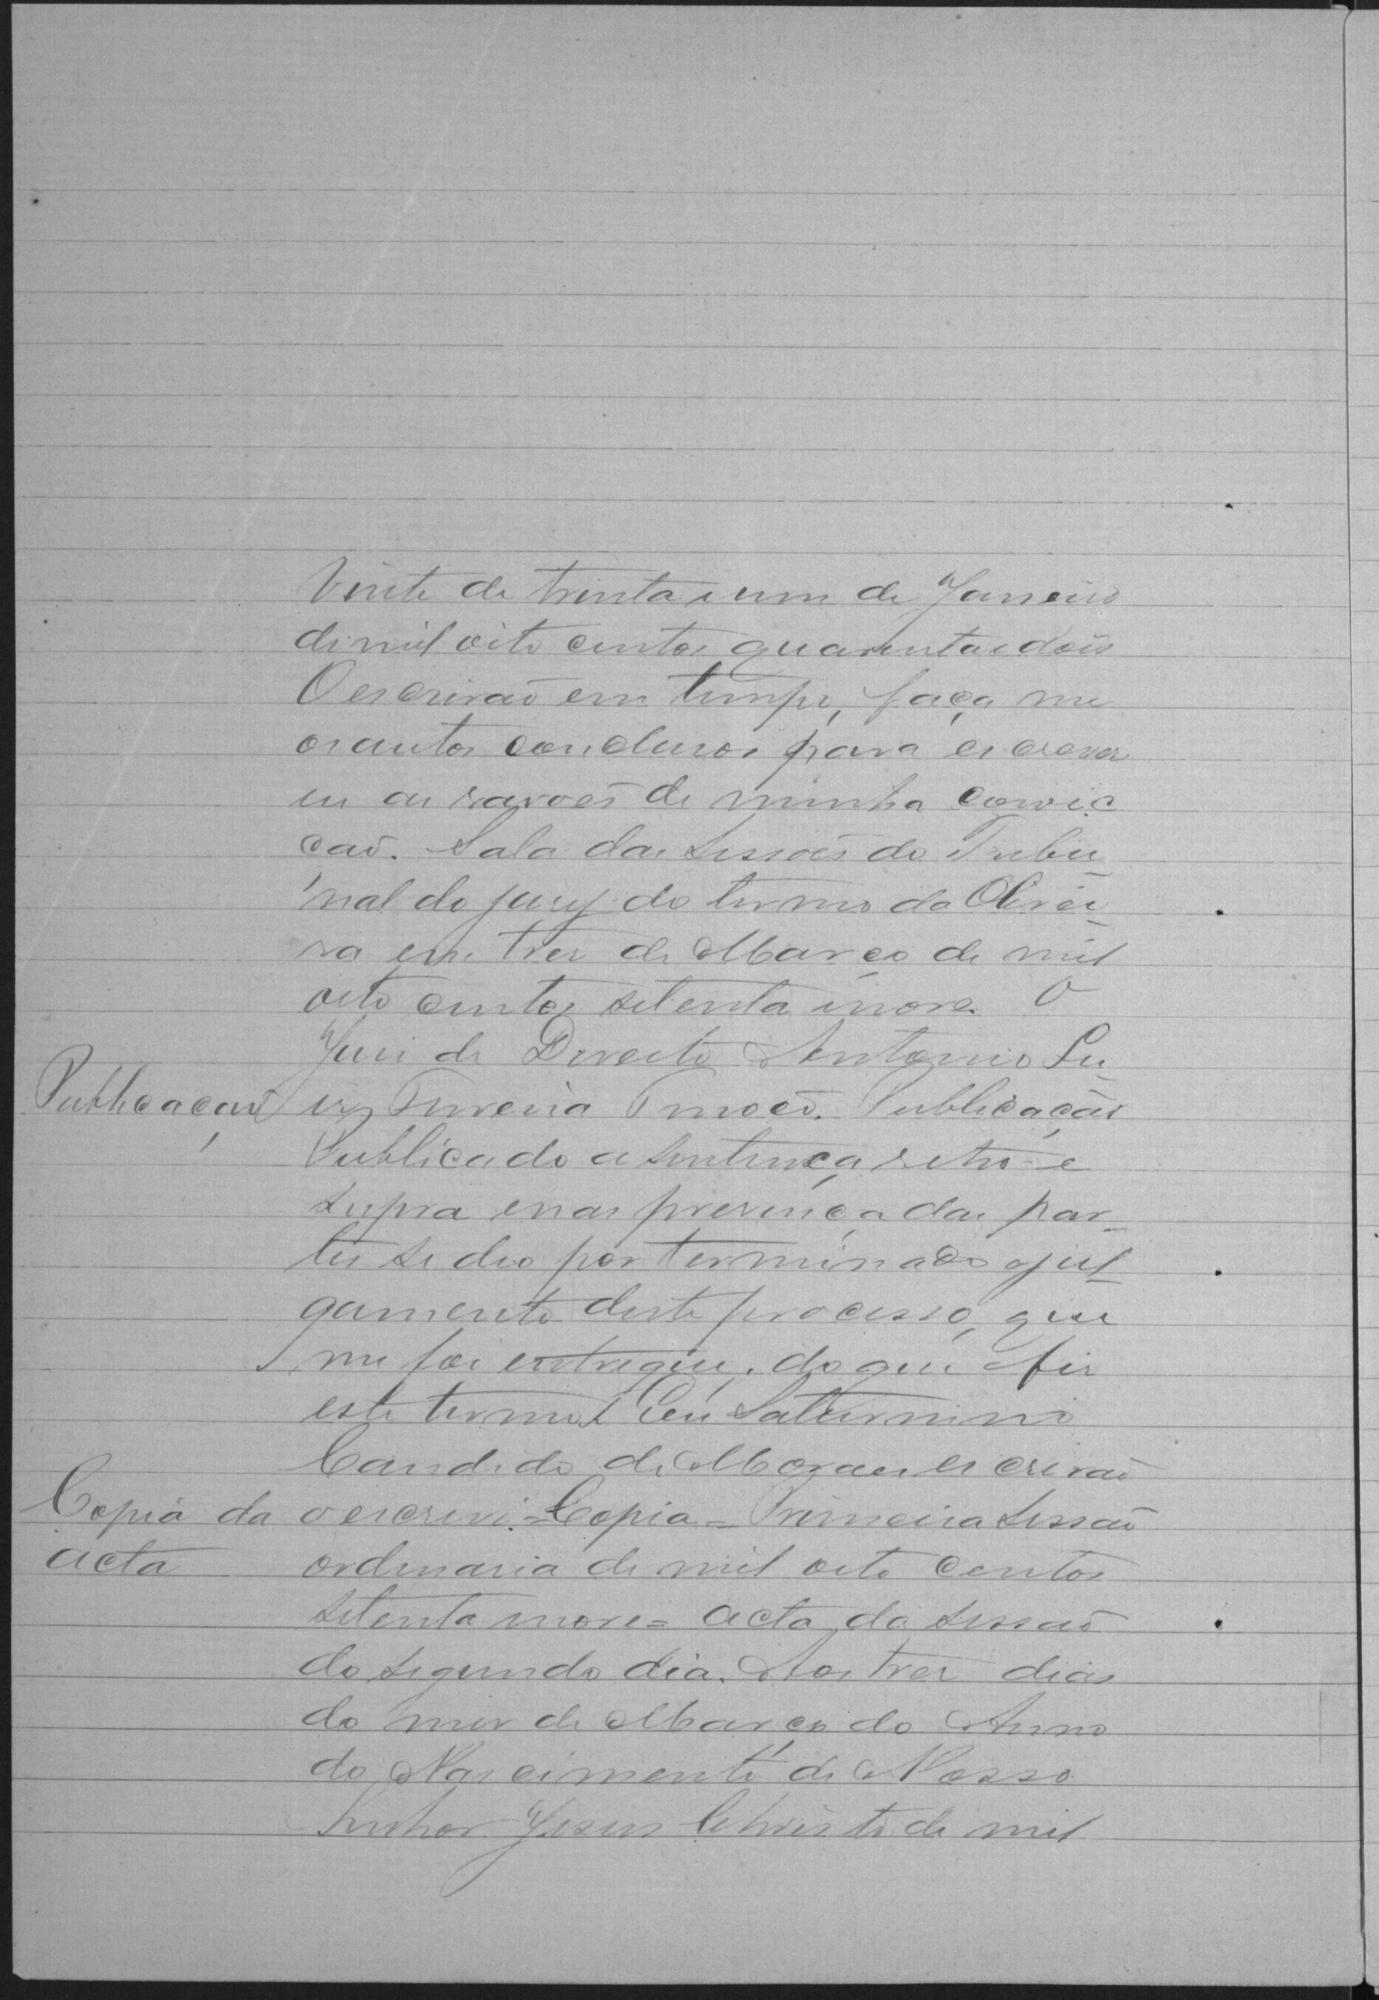 Vinte de trinta e um de Janeiro
de mil oito centos quarenta e dois
O escrivaõ em tempo, faça me
os autos conclusos para escrever
em as razoẽs de minha convic
caõ. Sala das Sessoẽs do Tribu_
nal do jury do termo da Olivei_
ra em tres de Março de mil
oito centos setenta e nove. O
Juis de Direito Antonio Lu_
Publicaçaõ
iz Ferreira Tinoco. Publicaçaõ
Publicado a sentença retro e
supra e nas presença das par_
tes se deo por terminado o jul_
gamento deste processo, que
me foi entregue, do que fis
este termo. Eu Saturnino
Candido de Moraes escrivaõ
Copia da
acta
o escrevi. = Copia = Primeira Sessaõ
ordinaria de mil oito centos
setenta e nove = Acta da sessaõ
do segundo dia. Aos tres dias
do mez de Março do Anno
do Nascimento de Nosso
Senhor Jesus Christo de mil